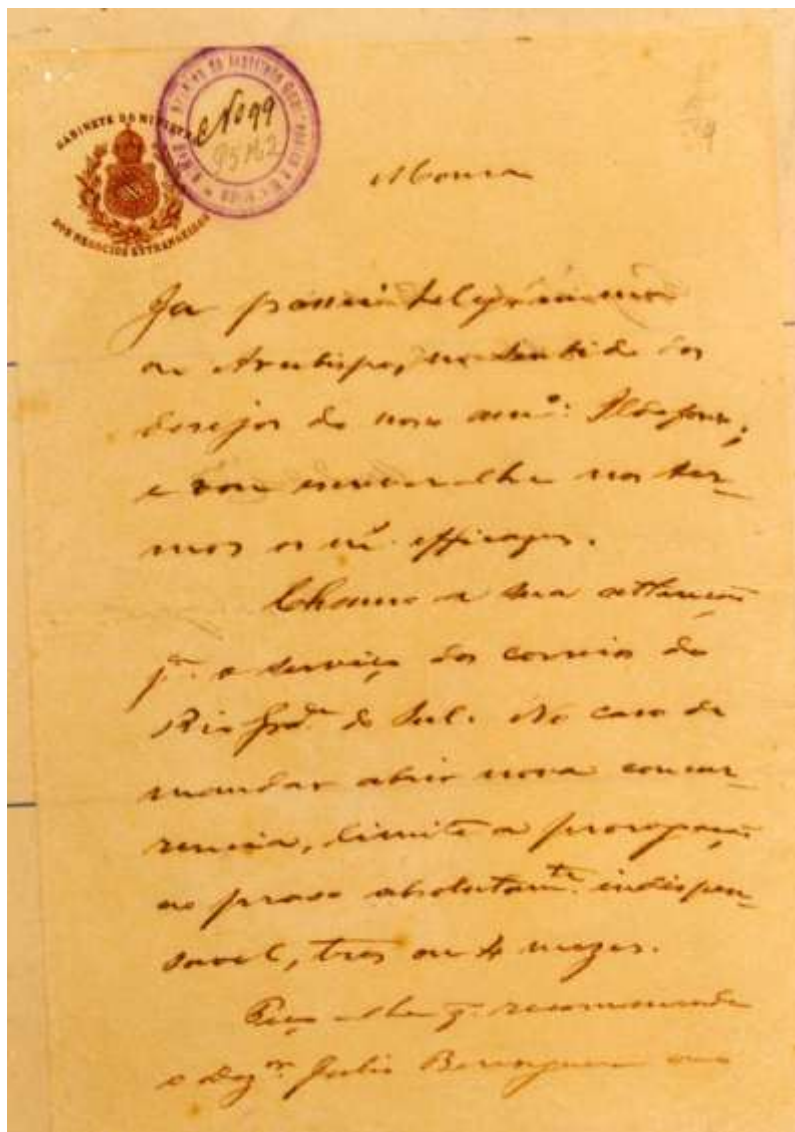 GABINETE DO MINISTRO
DOS NEGOCIOS ESTRANGEIROS
No 99
Moura
Ja passei telegramma
ao Arcebispo, no sentido dos
desejos do nosso amº: Ildefonso,
e vou escrever-lhe nos ter-
mos os m efficazes.
Chamo a sua attenção
pª. o serviço dos correios do
Rio Grde. do Sul. No caso de
mandar abrir nova concur-
rencia, limite a prorogação
ao praso absolutamte. indispen-
savel, tres ou 4 mezes.
Peço-lhe q. recommende
o Dezor. Julio Berenguer ao